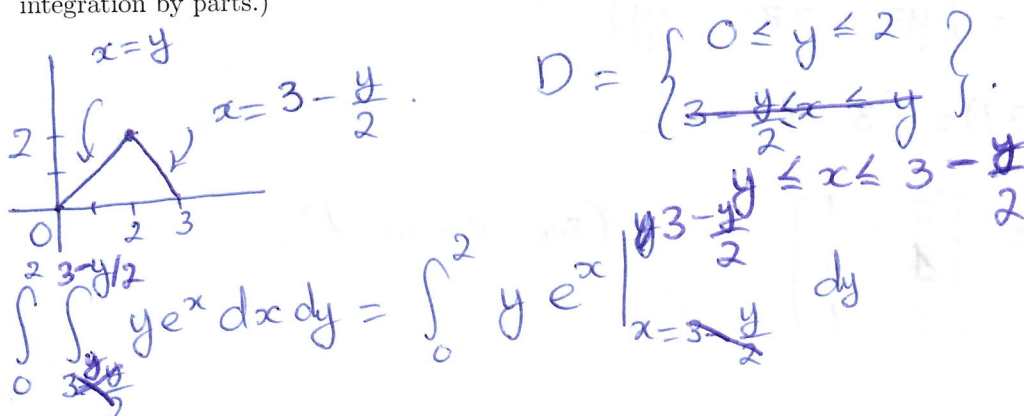 integration by parts.)
x = y
x = 3 - y/2 .
2
0 2 3
D = { 0 ≤ y ≤ 2
3 - y/2 ≤ x ≤ y } .
y ≤ x ≤ 3 - y/2
∫_0^2 ∫_y^{3-y/2} y e^x dx dy = ∫_0^2 y e^x |_{x=y}^{3-y/2} dy